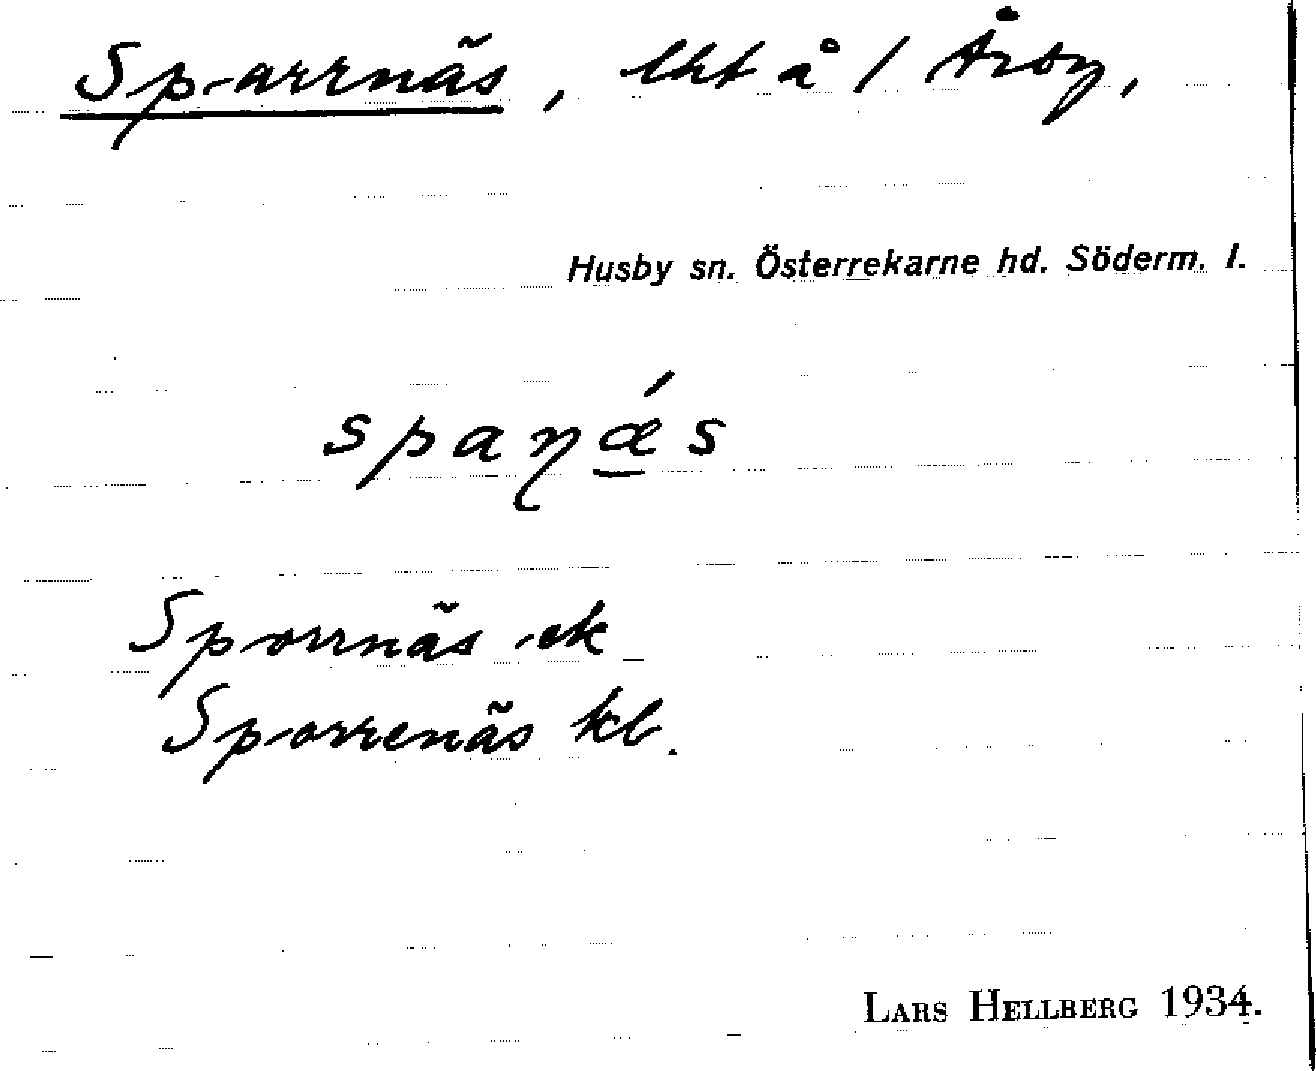 Sparrnäs, lht å / Årby,
Husby sn. Österrekarne hd. Söderm. l.
spaŋǽs
Sporrnäs ek
Sporrenäs kb.
LARS HELLBERG 1934.